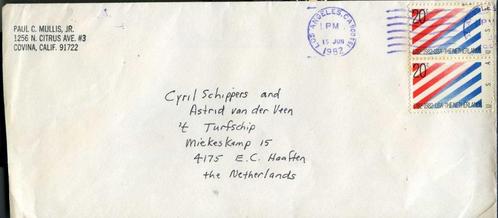 PAUL C. MULLIS, JR.
1256 N. CITRUS AVE. #3
COVINA, CALIF. 91722
LOS ANGELES, CA
PM
15 JUN
1982
20
1782-1982-USA-THE NETHERLANDS
20
1782-1982-USA-THE NETHERLANDS
Cyril Schippers and
Astrid van der Veen
't Turfschip
Miekeskamp 15
4175 E.C. Haaften
the Netherlands